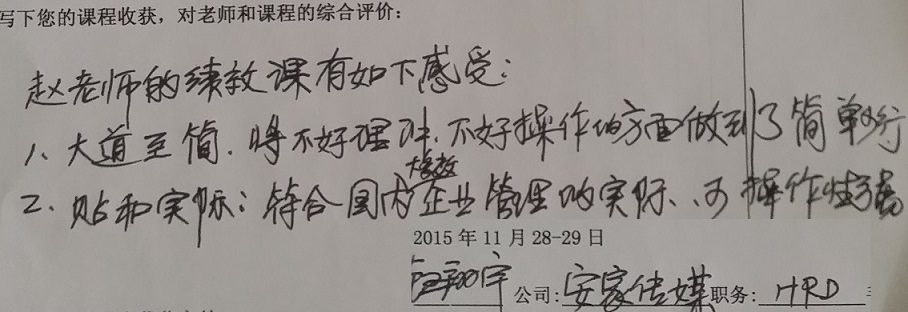 写下您的课程收获，对老师和课程的综合评价：
赵老师的绩效课有如下感受：
1、大道至简．将不好理解．不好操作的方面做到了简单行
2．贴和实际：符合国内大多数企业管理的实际、可操作性强
2015年11月28-29日
公司：安家传媒职务：HRD